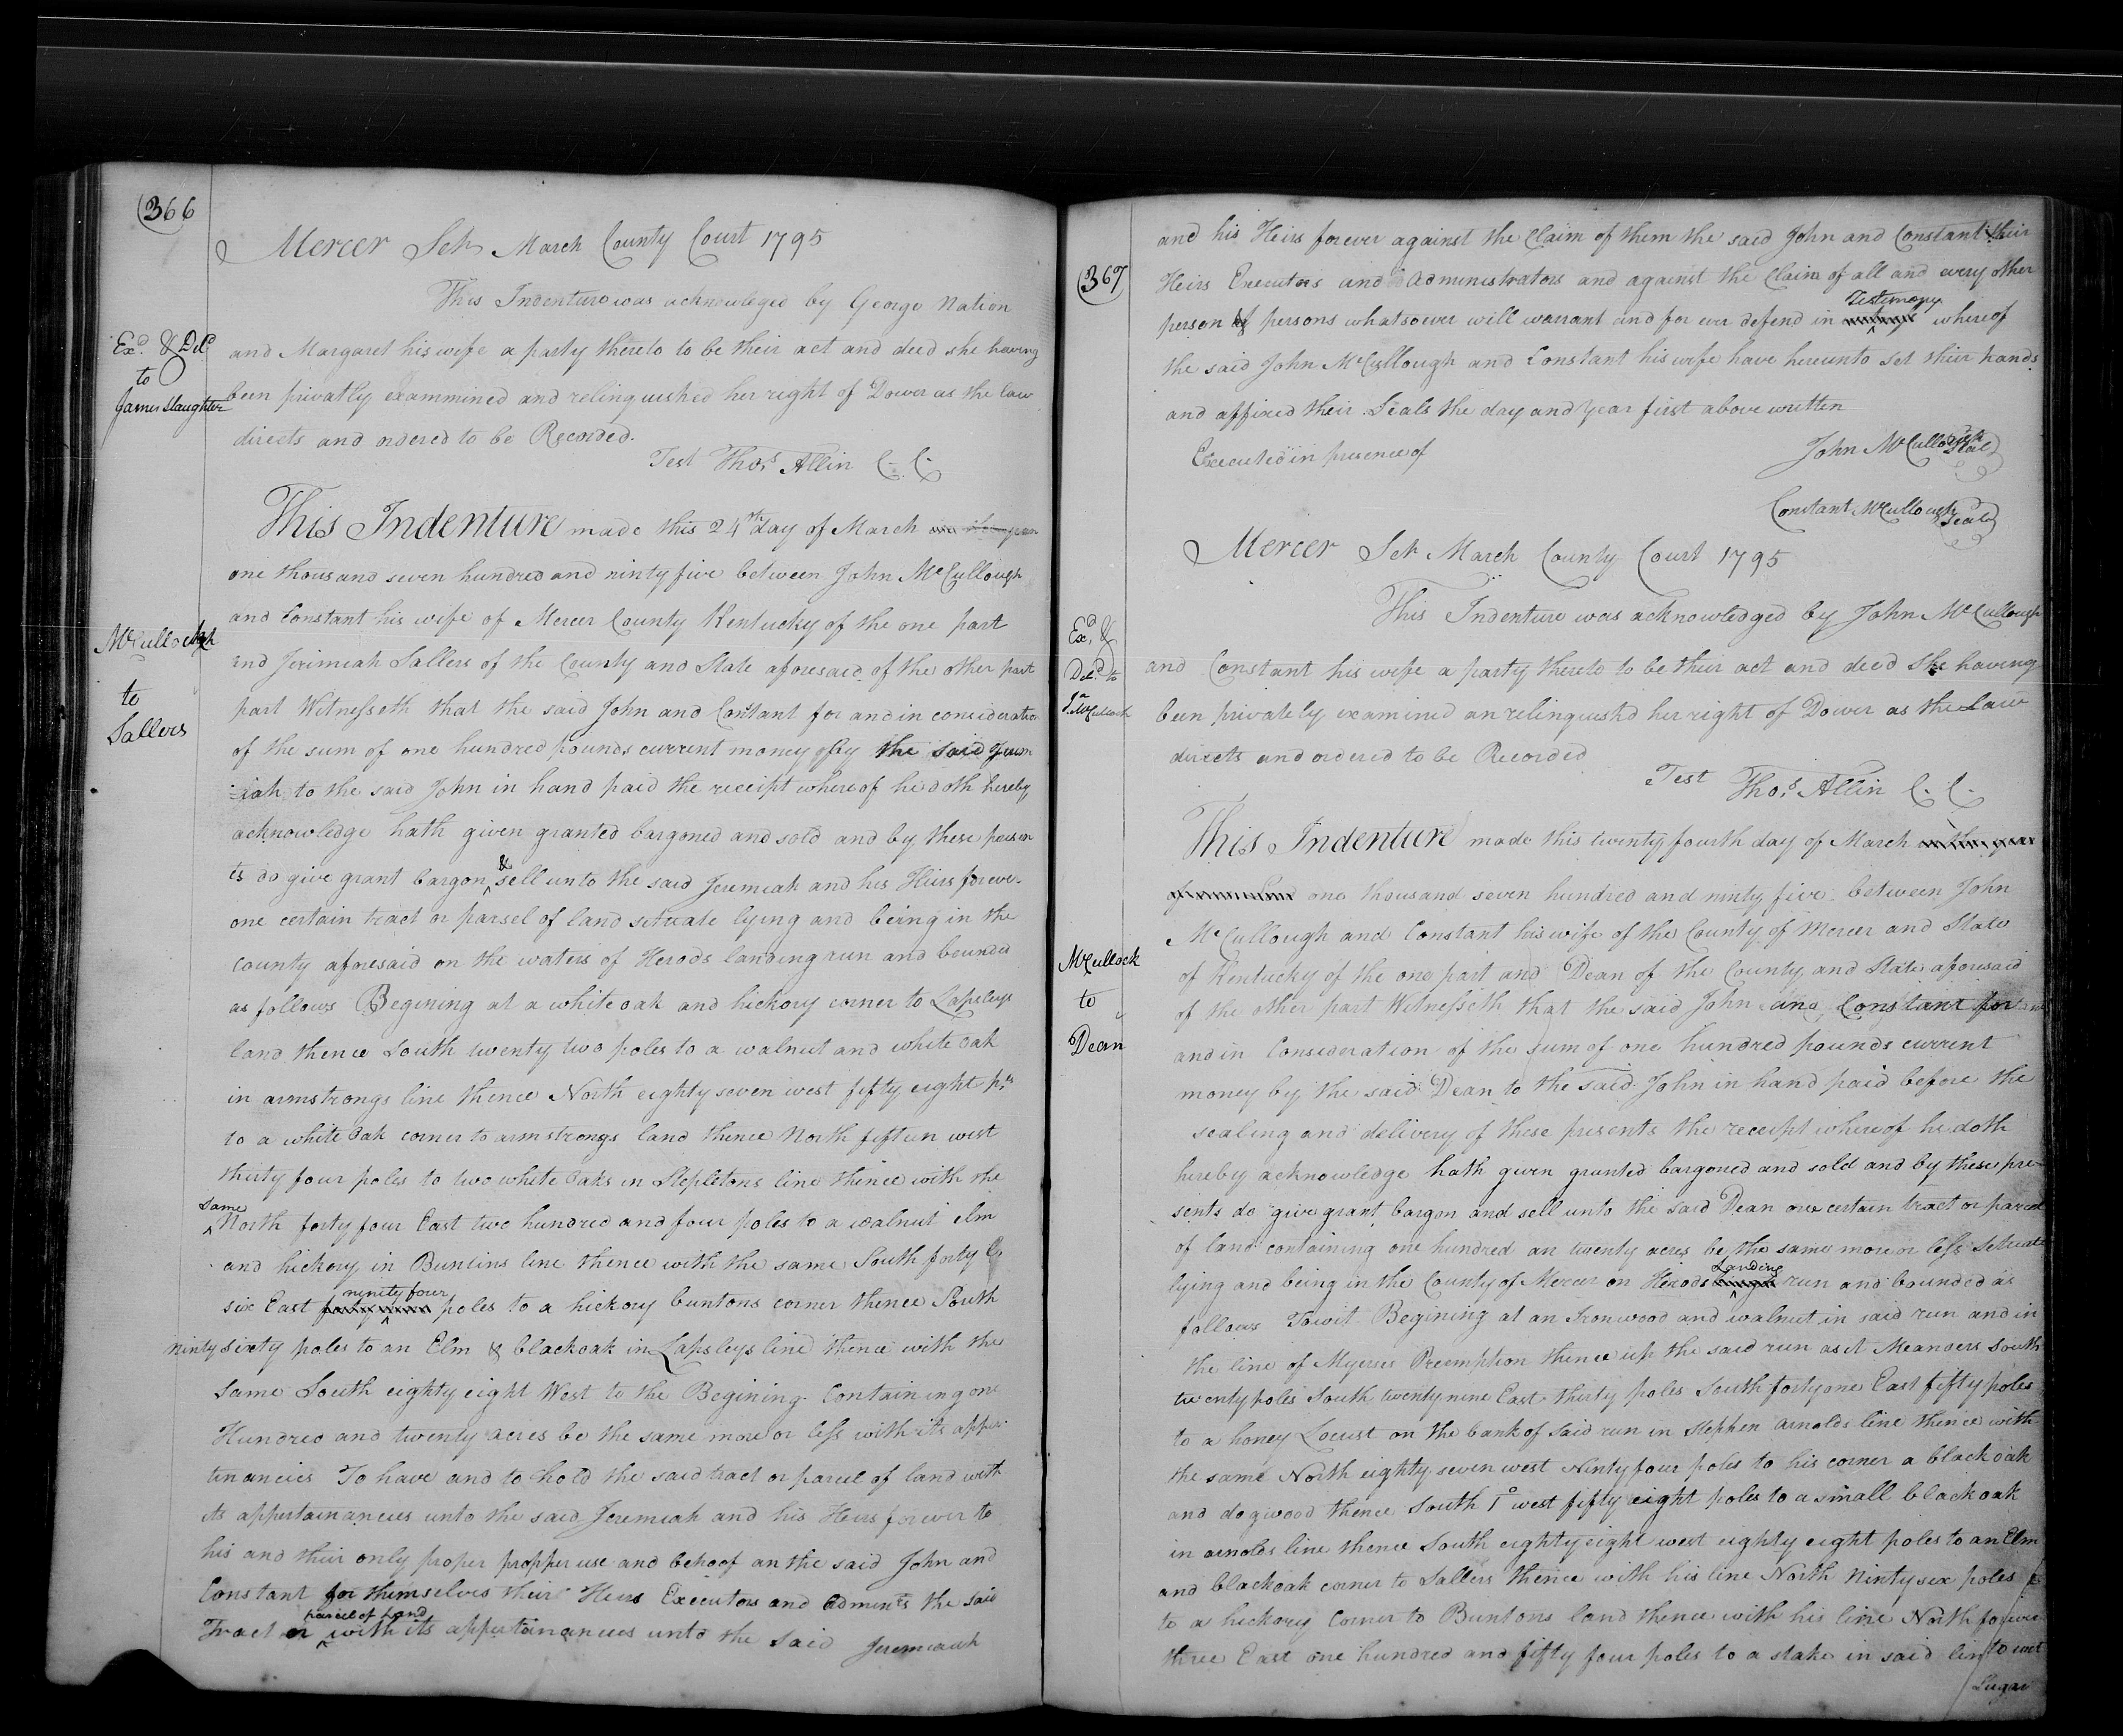 (366
Mercer Sct March County Court 1795
This Indenture was acknowleged by George Nation
Exd. & Deld
to
James Slaughter
and Margaret his wife a party thereto to be their act and deed she having
been privatly exammined and relinquished her right of Dower as the law
directs and ordered to be Recorded.
Test Thos. Allin C. C.
This Indenture made this 24th day of March
one thousand seven hundred and ninty five between John McCullough
and Constant his wife of Mercer County Kentucky of the one part
McCullough
to
Sallers
and Jerimiah Sallers of the County and State aforesaid of the other part
part Witnesseth that the said John and Constant for and in consideration
of the sum of one hundred pounds current money of by the said Jerem
iah to the said John in hand paid the receipt whereof he doth hereby
acknowledge hath given granted bargoned and sold and by these presen
ts do give grant bargon & sell unto the said Jeremiah and his Heirs forever
one certain tract or parsel of land setuate lying and being in the
county aforesaid on the waters of Herods landing run and bounded
as follows Begining at a white oak and hickory corner to Lapsleys
land thence South twenty two poles to a walnut and white oak
in armstrongs line thence North eighty seven west fifty eight pls
to a white Oak corner to armstrongs land thence North fifteen west
thirty four poles to two white Oaks in Stepletons line thence with the
same North forty four East two hundred and four poles to a walnut elm
and hickory in Buntins line thence with the same South forty
six East ninety four poles to a hickory buntons corner thence South
ninty sixty poles to an Elm & black oak in Lapsleys line thence with the
same South eighty eight West to the Begining Containing one
Hundred and twenty acres be the same more or less with its appur
tinancies To have and to hold the said tract or parcel of land with
its appertainancies unto the said Jeremiah and his Heirs forever to
his and their only proper propper use and behoof an the said John and
Constant for themselves their Heirs Executors and Adminrs the said
Tract or parcel of Land with its appertainances unto the said Jeremiah
(367
and his Heirs forever against the Claim of them the said John and Constant their
Heirs Executors and Administrators and against the Claim of all and every other
person of persons whatsoever will warrant and for ever defend in Testimony whereof
the said John McCullough and Constant his wife have hereunto set their hands
and affixed their Seals the day and year first above written
Executed in presence of
John McCullough Seal
Constant McCullough Seal
Mercer Sct March County Court 1795
This Indenture was acknowledged by John McCullough
Exd. &
Deld. to
Jn. McCullock
and Constant his wife a party thereto to be their act and deed she having
been privately examined an relinquishd her right of Dower as the Law
directs and ordered to be Recorded
Test Thos. Allin C. C.
This Indenture made this twenty fourth day of March in the year
one thousand seven hundred and ninty five between John
McCullough and Constant his wife of the County of Mercer and State
McCullock
to
Dean
of Kentucky of the one part and Dean of the County and State aforesaid
of the other part Witnesseth that the said John and Constant for and
and in Consideration of the sum of one hundred pounds current
money by the said Dean to the said John in hand paid before the
sealing and delivery of these presents the receipt whereof he doth
hereby acknowledge hath given granted bargoned and sold and by these pre
sents do give grant bargon and sell unto the said Dean one certain tract or parcel
of land containing one hundred an twenty acres be the same more or less setuate
lying and being in the County of Mercer on Herods Landing run and bounded as
follows Towit Begining at an Ironwood and walnut in said run and in
the line of Myerses Preemption thence up the said run as it Meanders South
twenty poles South twenty nine East thirty poles South forty one East fifty poles
to a honey Locust on the bank of said run in Stephen arnolds line thence with
the same North eighty seven west Ninty four poles to his corner a black oak
and dogwood thence South 1° west fifty eight poles to a small black oak
in arnolds line thence South eighty eight west eighty eight poles to an Elm
and black oak corner to Sallers thence with his line North Ninty six poles
to a hickory Corner to Buntons land thence with his line North
three East one hundred and fifty four poles to a stake in said line
Sugar